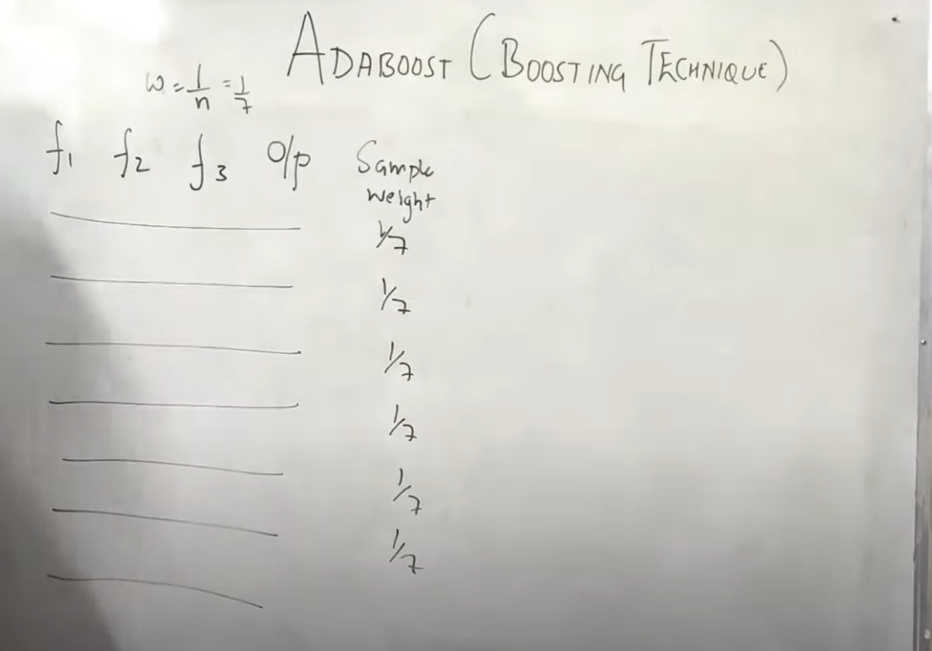 ADABOOST (BOOSTING TECHNIQUE)
w = 1/n = 1/7
f1 f2 f3 O/p Sample weight
1/7
1/7
1/7
1/7
1/7
1/7